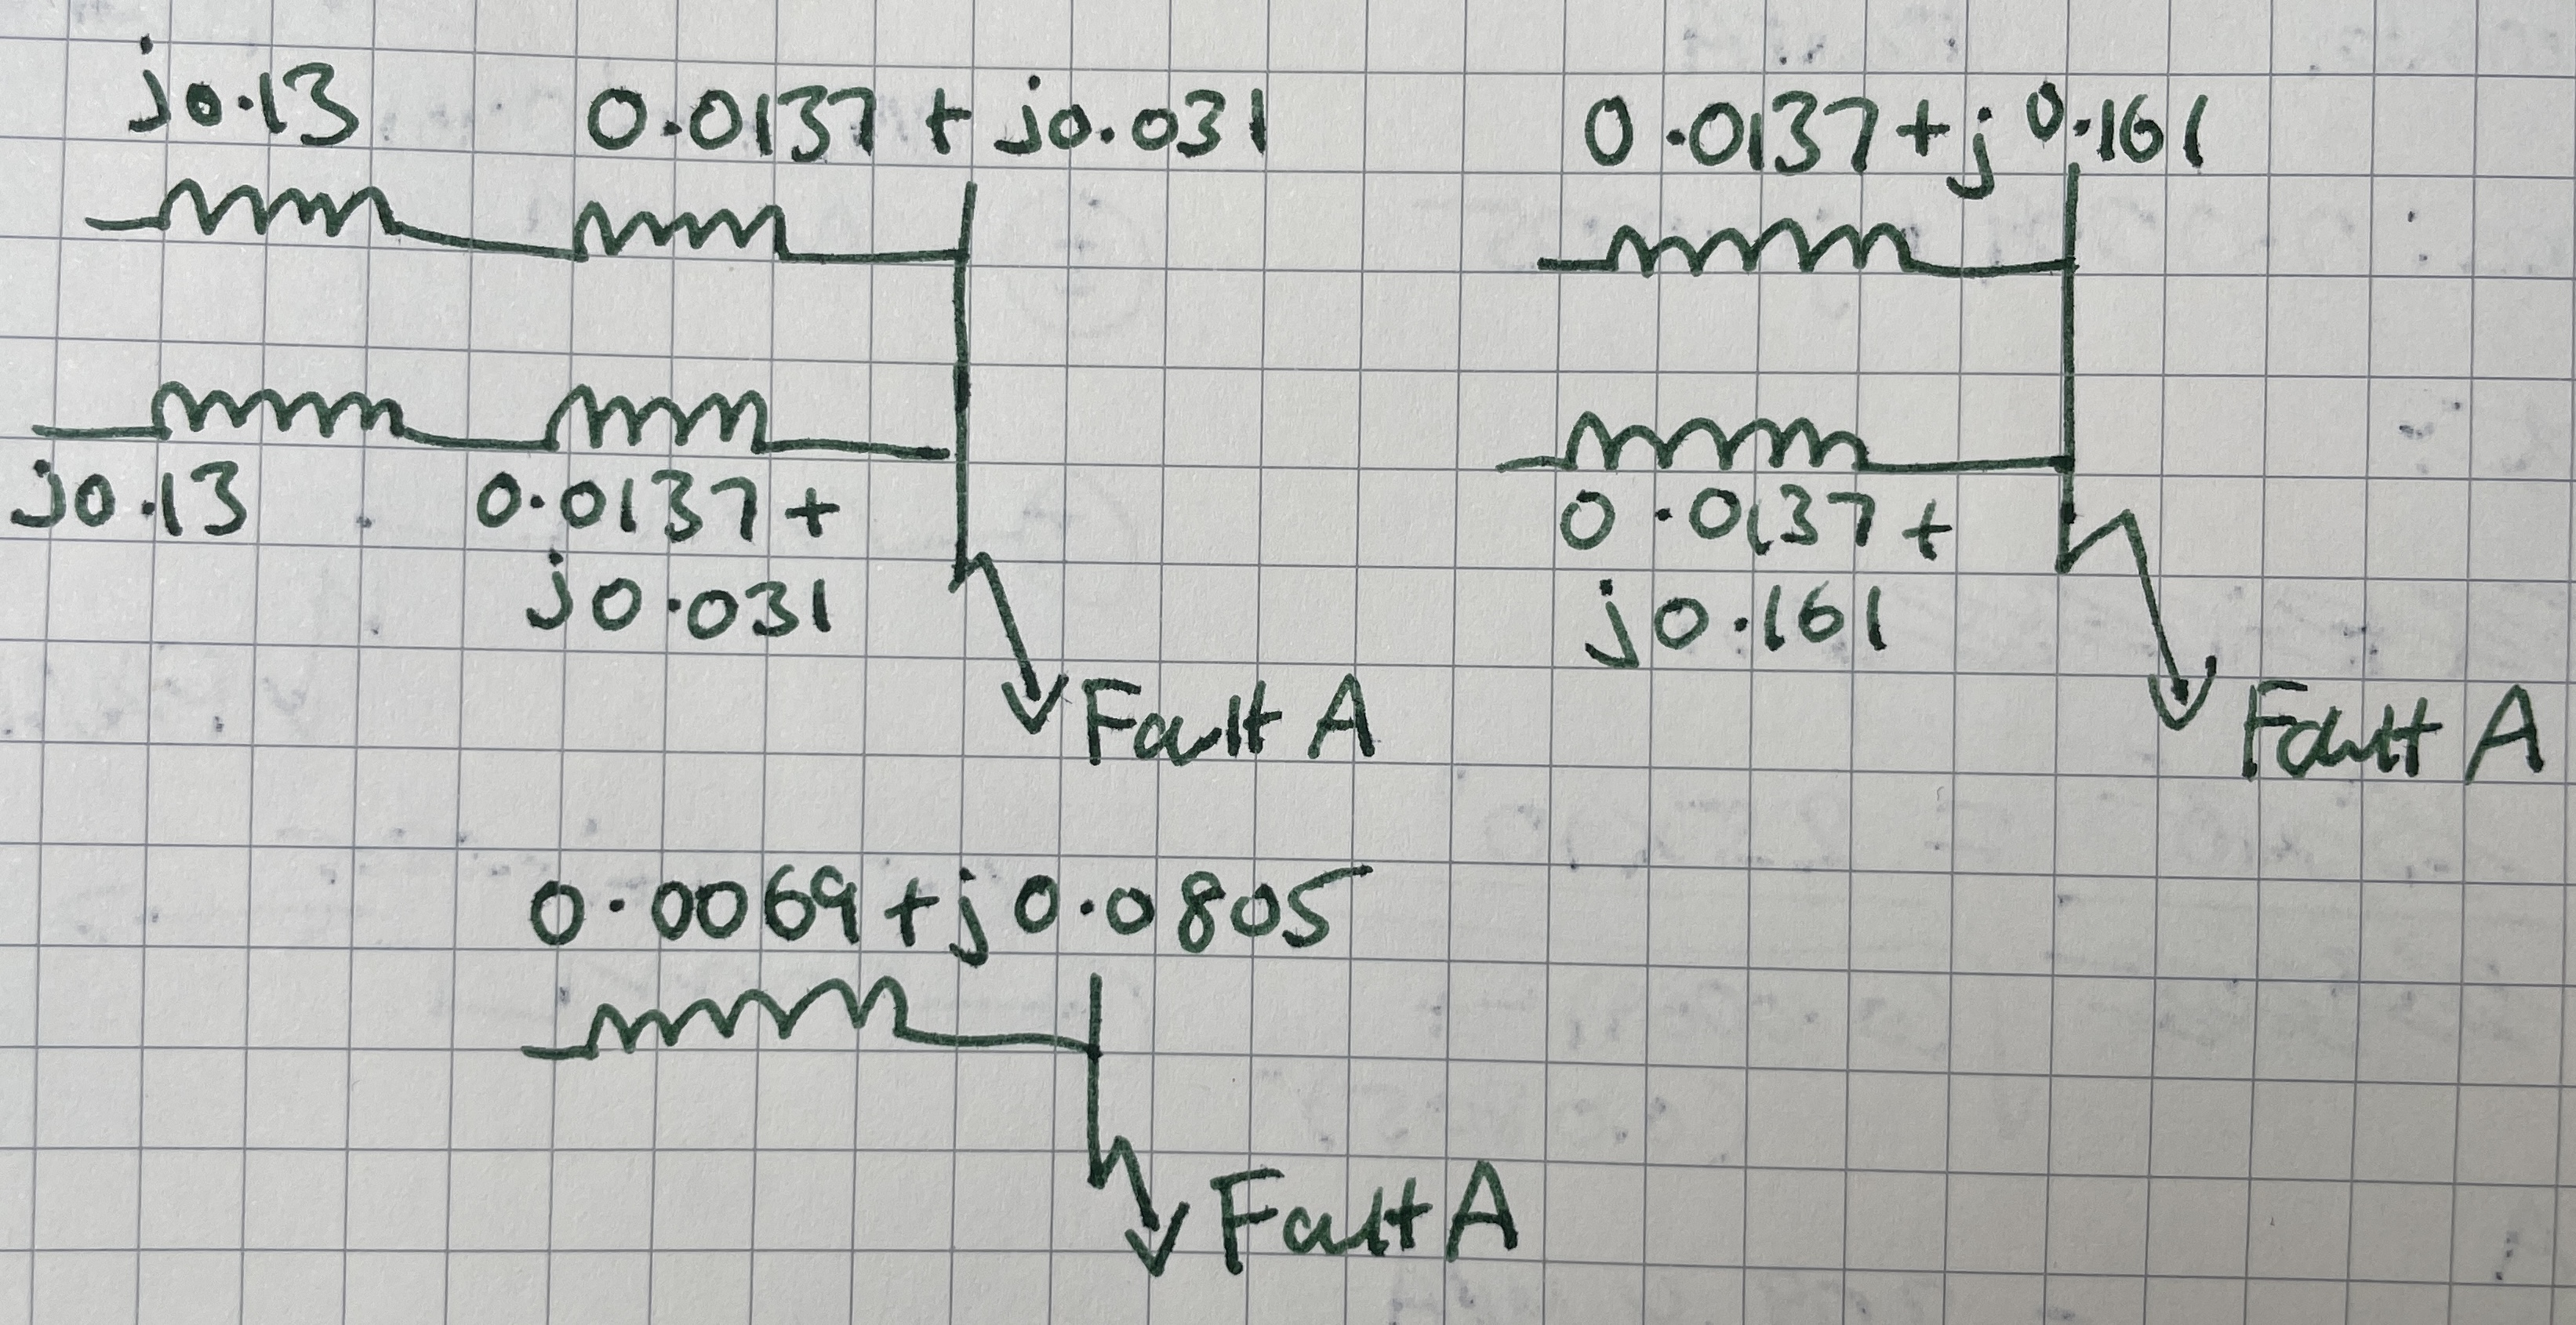 j0.13 0.0137 + j0.031
j0.13 0.0137 +
j0.031
Fault A
0.0137 + j0.161
0.0137 +
j0.161
Fault A
0.0069 + j0.0805
Fault A